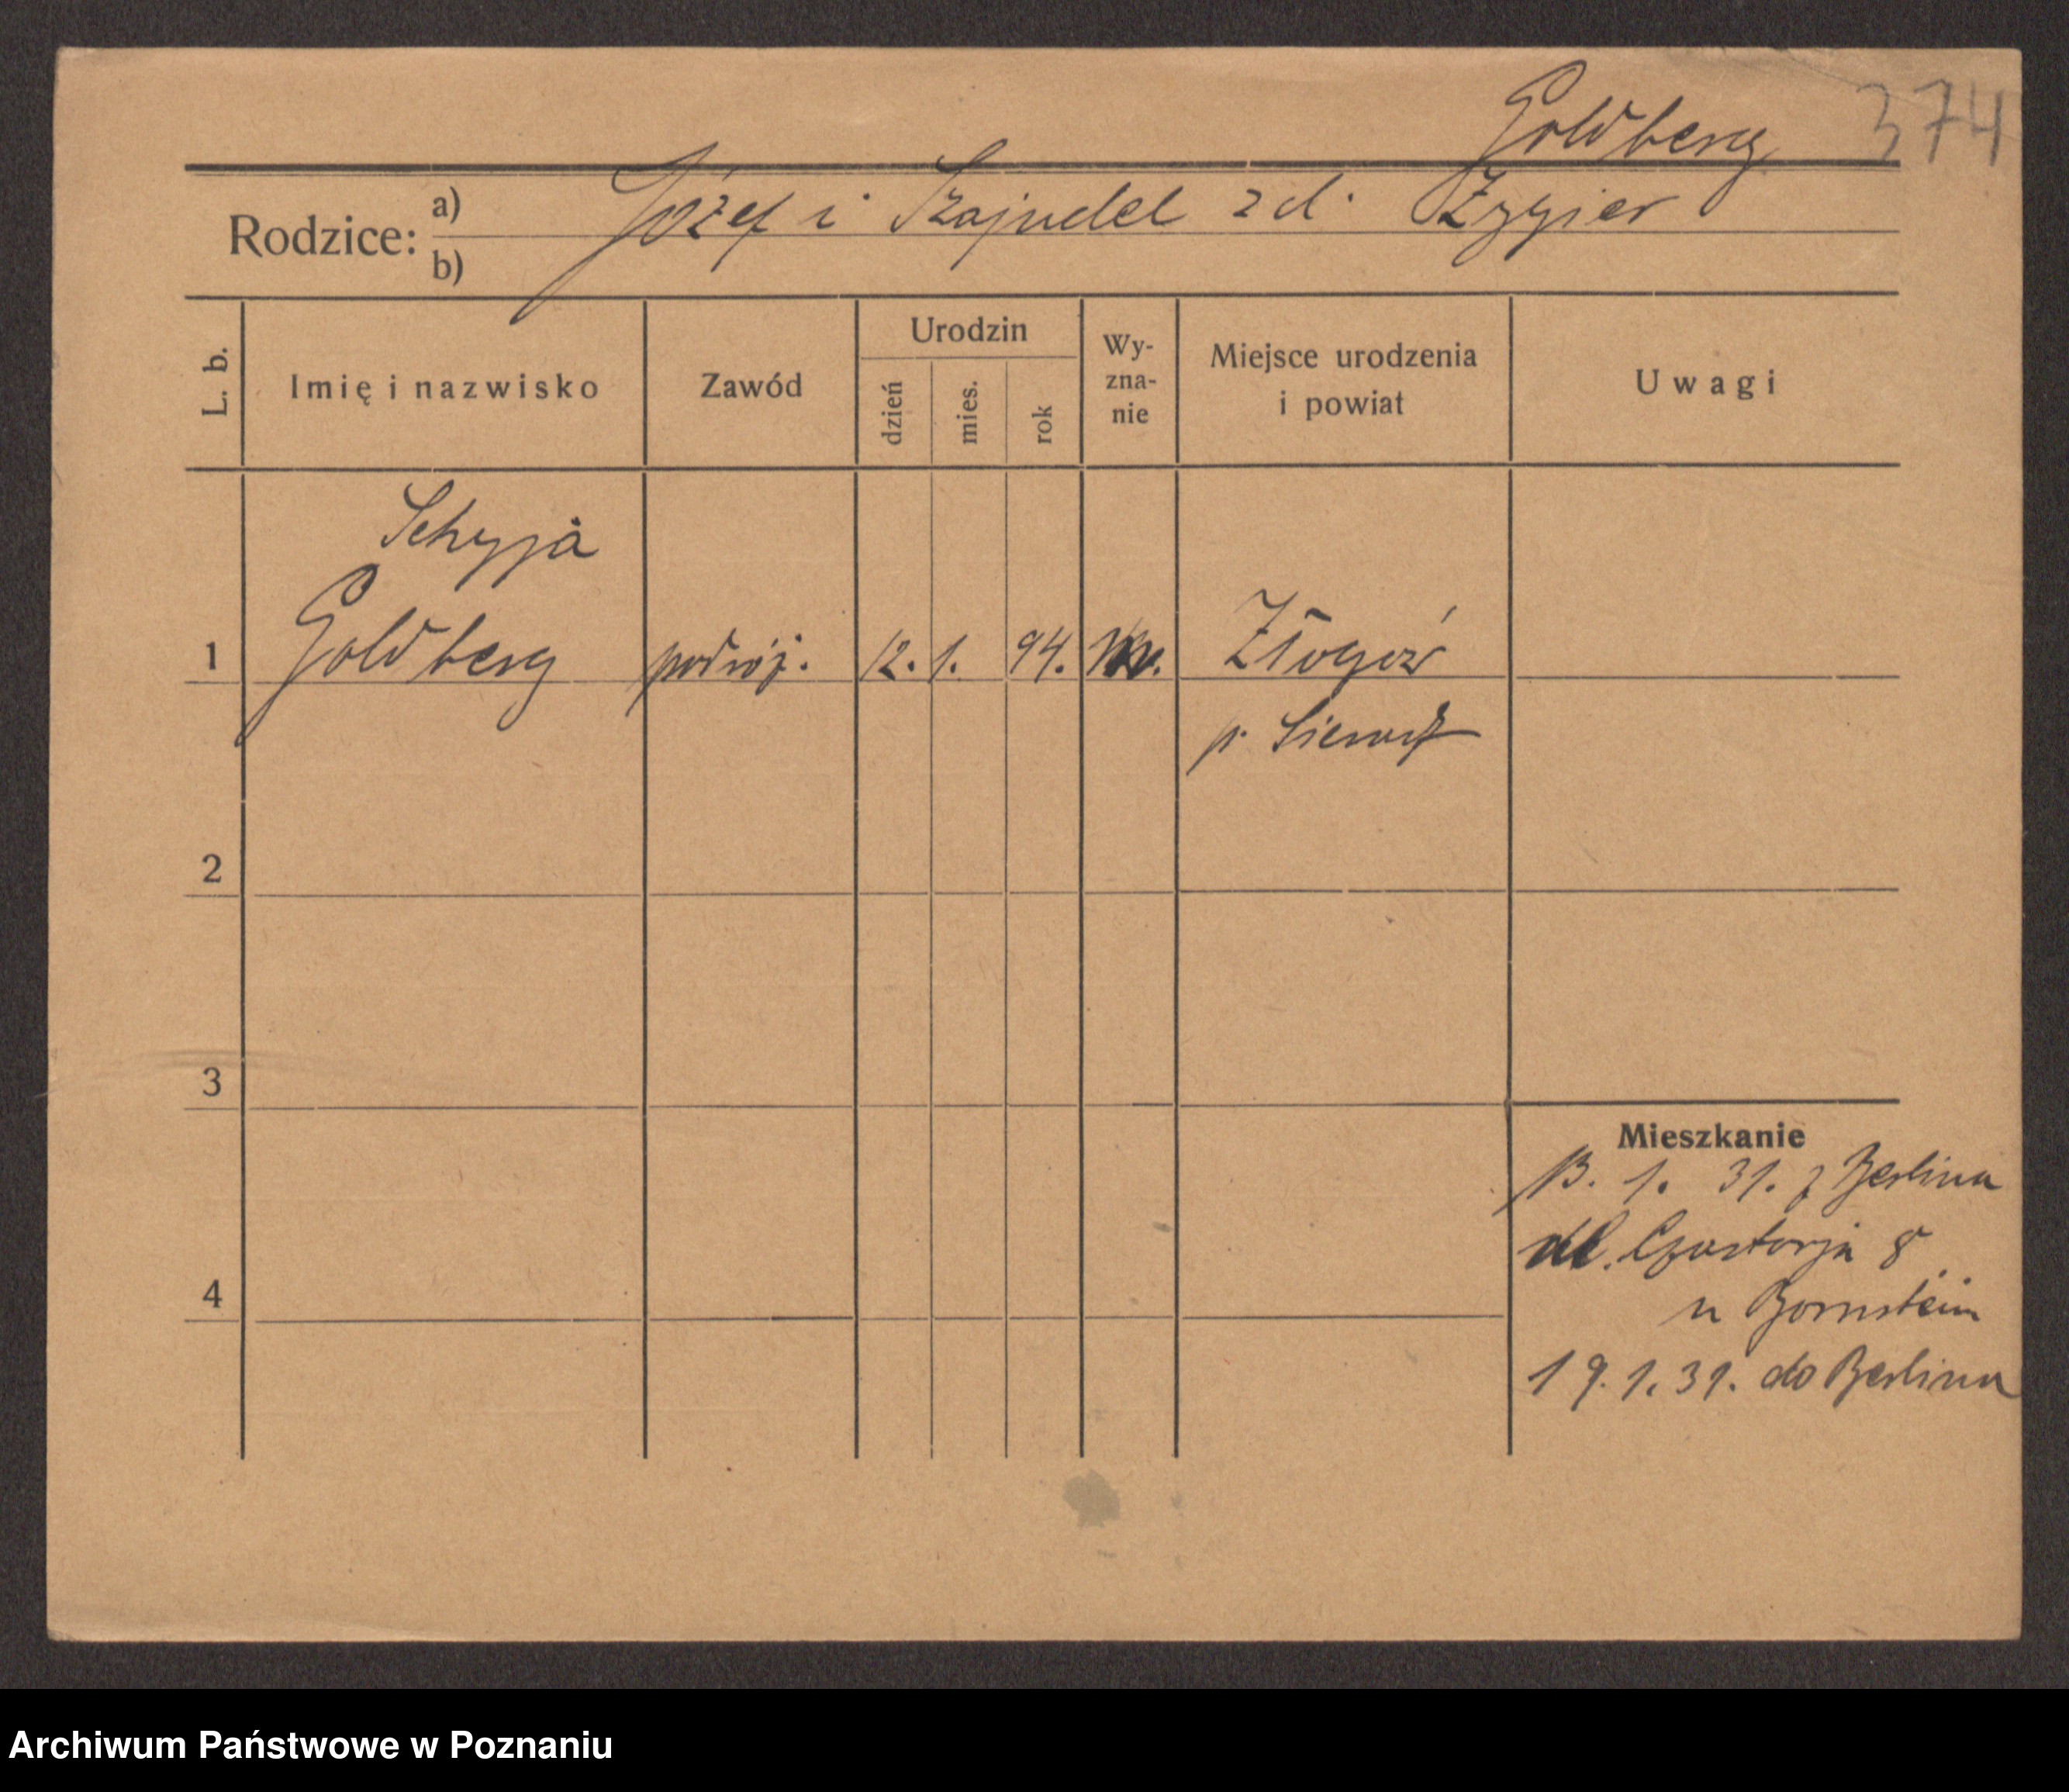 Goldberg 374
Rodzice: a) Józef i Szajndel zd. Zygier
b)
L. b. Imię i nazwisko Zawód Urodzin dzień mies. rok Wy- zna- nie Miejsce urodzenia i powiat Uwagi
Schyja
1 Goldberg podróż. 12. 1. 94. Złogów
p. Sieradz
2
3
Mieszkanie
13. 1. 31. z Berlina
ul. 8
4
u Bornstein
19. 1. 31. do Berlina
Archiwum Państwowe w Poznaniu